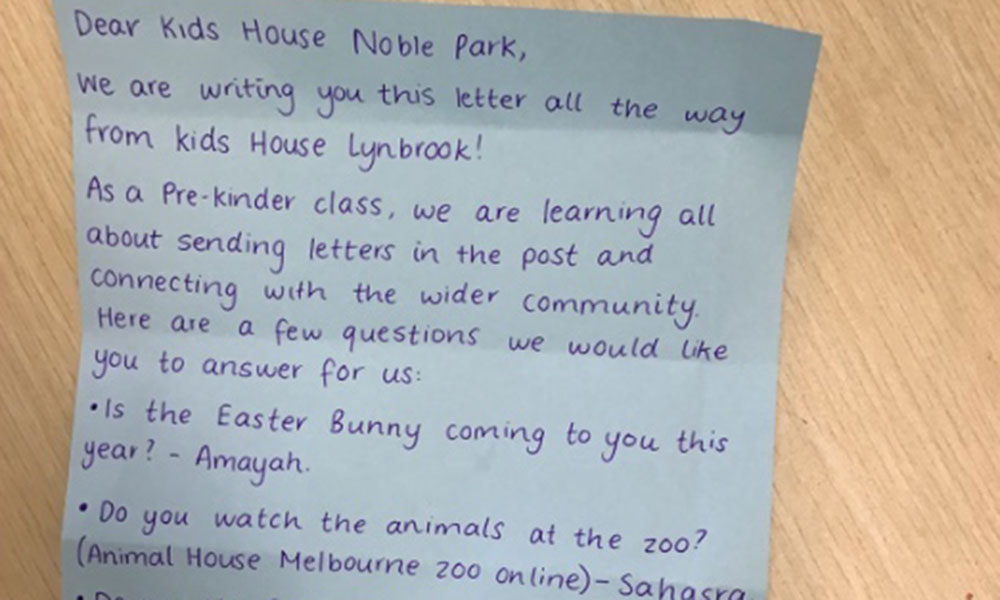 Dear Kids House Noble Park,
We are writing you this letter all the way
from kids House Lynbrook!
As a Pre-kinder class, we are learning all
about sending letters in the post and
connecting with the wider community.
Here are a few questions we would like
you to answer for us:
• Is the Easter Bunny coming to you this
year? - Amayah.
• Do you watch the animals at the zoo?
(Animal House Melbourne zoo online) - Sahasra